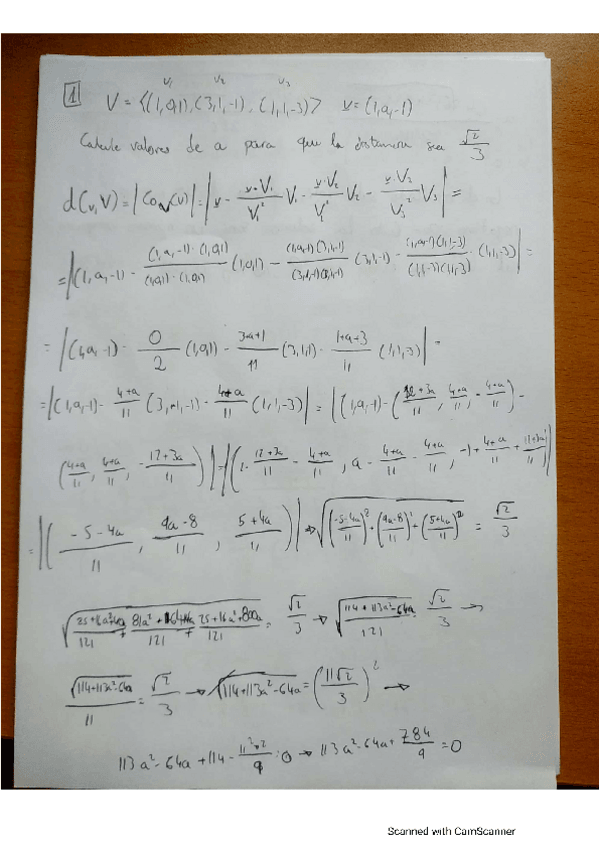 1 V = <(1,0,1),(3,1,-1),(1,1,-3)> v=(1,a,-1)
v₁ v₂ v₃
Calcule valores de a para que la distancia sea √2/3
d(v,V)=| (v)|=|v - v·V₁/V₁² V₁ - v·V₂/V₂² V₂ - v·V₃/V₃² V₃| =
=|(1,a,-1) - (1,a,-1)·(1,0,1)/(1,0,1)·(1,0,1) (1,0,1) - (1,a,-1)(3,1,-1)/(3,1,-1)(3,1,-1) (3,1,-1) - (1,a,-1)(1,1,-3)/(1,1,-3)(1,1,-3) ·(1,1,-3)| =
= |(1,a,-1) - 0/2 (1,0,1) - 3+a+1/11 (3,1,1) - 1+a+3/11 (1,1,3)| =
=|(1,a,-1) - 4+a/11 (3,1,-1) - 4+a/11 (1,1,-3)| = |(1,a,-1) - (12+3a/11, 4+a/11, - 4+a/11) -
(4+a/11, 4+a/11, -12+3a/11)| = |(1 - 12+3a/11 - 4+a/11, a - 4+a/11 - 4+a/11, -1 + 4+a/11 + 12+3a/11)|
= |(-5-4a/11, 9a-8/11, 5+4a/11)| → √((-5-4a/11)² + (9a-8/11)² + (5+4a/11)²) = √2/3
√(/121 + /121 + /121) = √2/3 → √(114+113a²-64a/121) = √2/3 →
√(114+113a²-64a)/11 = √2/3 → √(114+113a²-64a) = (11√2/3)² →
113a²-64a+114 - 11²·2/9 = 0 → 113a²-64a+ 784/9 = 0
Scanned with CamScanner